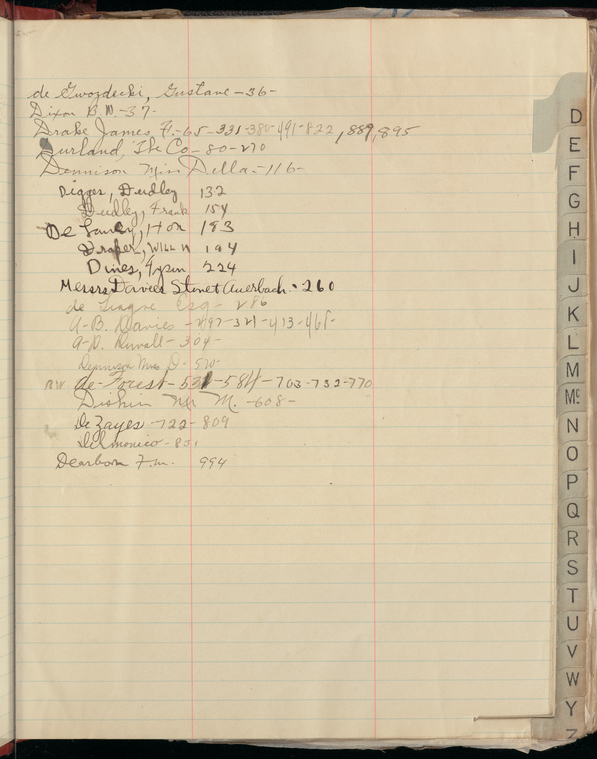 de Gwozdecki, Gustave - 36 -
Dixon B. W. - 37 -
Drake James F. - 65 - 331 - 380 - 491 - 822, 889, 895
Durland, The Co - 80 - 270
Dennison Miss Della - 116 -
Digges, Dudley 132
Dudley, Frank 154
De Lancey, Hon 183
Draper, Will H 194
Dines, Tyson 224
Messrs Davies Stone + Auerbach - 260
de Esq - 286
A. B. Davies - 297 - 321 - 413 - 461 -
A. D. Duvall - 304 -
Dennison Miss D - 520 -
de Forest - 531 - 584 - 703 - 732 - 770
Mr M. - 608 -
De Zayes - 722 - 809
Delmonico - 851
Dearborn F. m. 994
D
E
F
G
H
I
J
K
L
M
Mc
N
O
P
Q
R
S
T
U
V
W
Y
Z